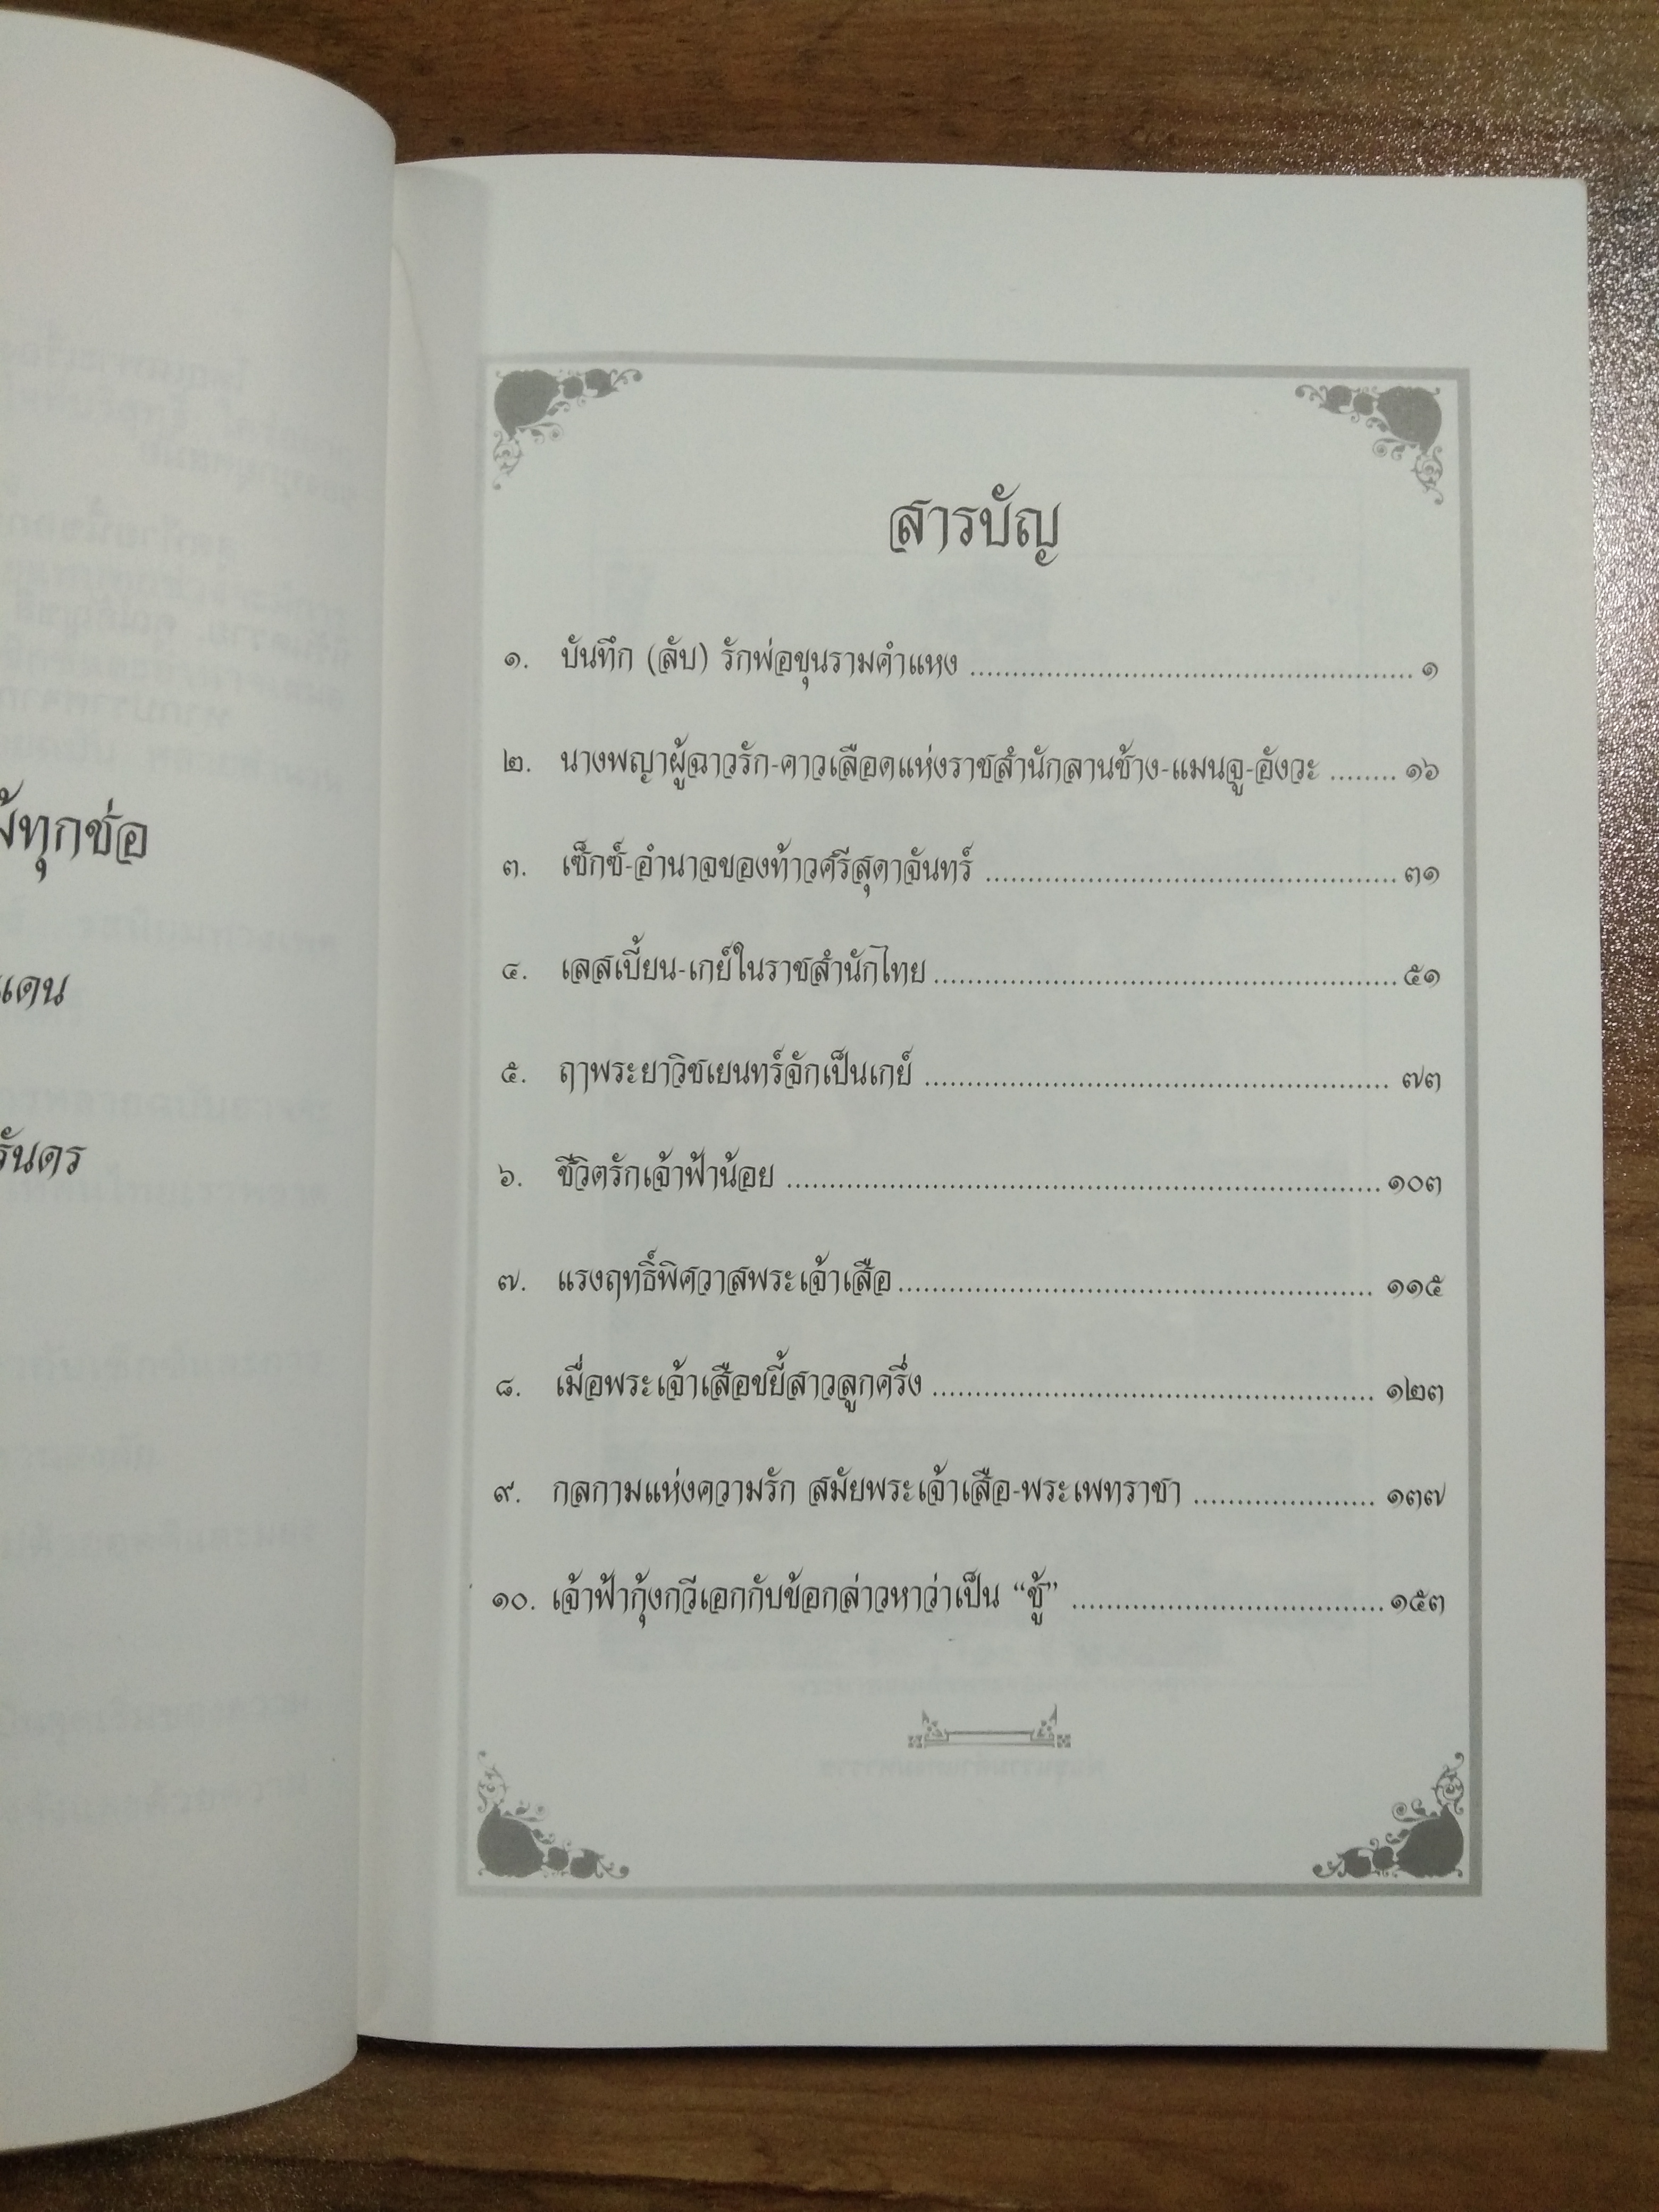 ทุกช่อ
แดน
รันดร
สารบัญ
๑. บันทึก (ลับ) รักพ่อขุนรามคำแหง ๑
๒. นางพญาผู้ฉาวรัก-คาวเลือดแห่งราชสำนักลานช้าง-แมนจู-อังวะ ๑๖
๓. เซ็กซ์-อำนาจของท้าวศรีสุดาจันทร์ ๓๑
๔. เลสเบี้ยน-เกย์ในราชสำนักไทย ๕๑
๕. ฤๅพระยาวิชเยนทร์จักเป็นเกย์ ๗๓
๖. ชีวิตรักเจ้าฟ้าน้อย ๑๐๓
๗. แรงฤทธิ์พิศวาสพระเจ้าเสือ ๑๑๕
๘. เมื่อพระเจ้าเสือขยี้สาวลูกครึ่ง ๑๒๓
๙. กลกามแห่งความรัก สมัยพระเจ้าเสือ-พระเพทราชา ๑๓๗
๑๐. เจ้าฟ้ากุ้งกวีเอกกับข้อกล่าวหาว่าเป็น “ชู้” ๑๕๓